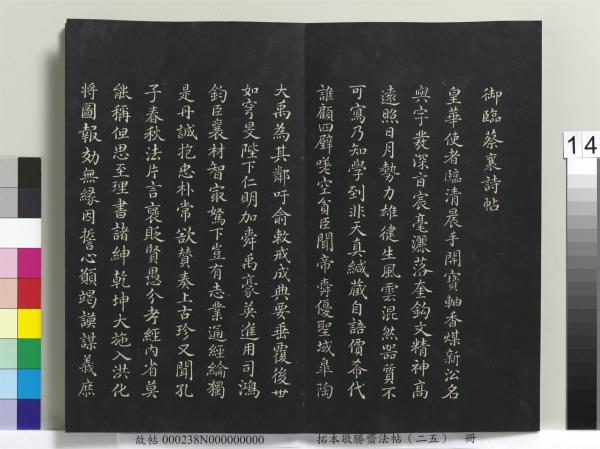 御臨蔡襄詩帖
皇華使者臨清晨手開寶軸香煤新沿名
與字發深旨宸毫灑落奎鈎文精神高
遠照日月勢力雄健生風雲混然器質不
可寫乃知學到非天真緘藏自語價希代
誰顧四壁嗟空貧臣聞帝舜優聖域皐陶
大禹為其鄰吁俞敕戒成典要垂覆後世
如穹旻陛下仁明加舜禹豪英進用司鴻
鈞臣襄材智最駑下豈有志業通經綸獨
是丹誠抱忠朴常欲贊奏上古珍又聞孔
子春秋法片言褒貶賢愚分考經內省莫
能稱但思至理書諸紳乾坤大施入洪化
將圖報効無緣因誓心願竭謨謀義庶
14
故帖 000238N000000000
拓本敬勝齋法帖（二五） 冊